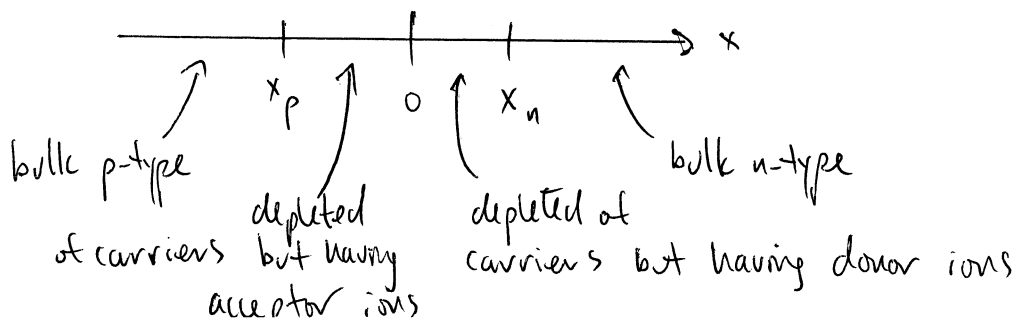 x
x_p 0 x_n
bulk p-type
bulk n-type
depleted
of carriers but having
acceptor ions
depleted of
carriers but having donor ions